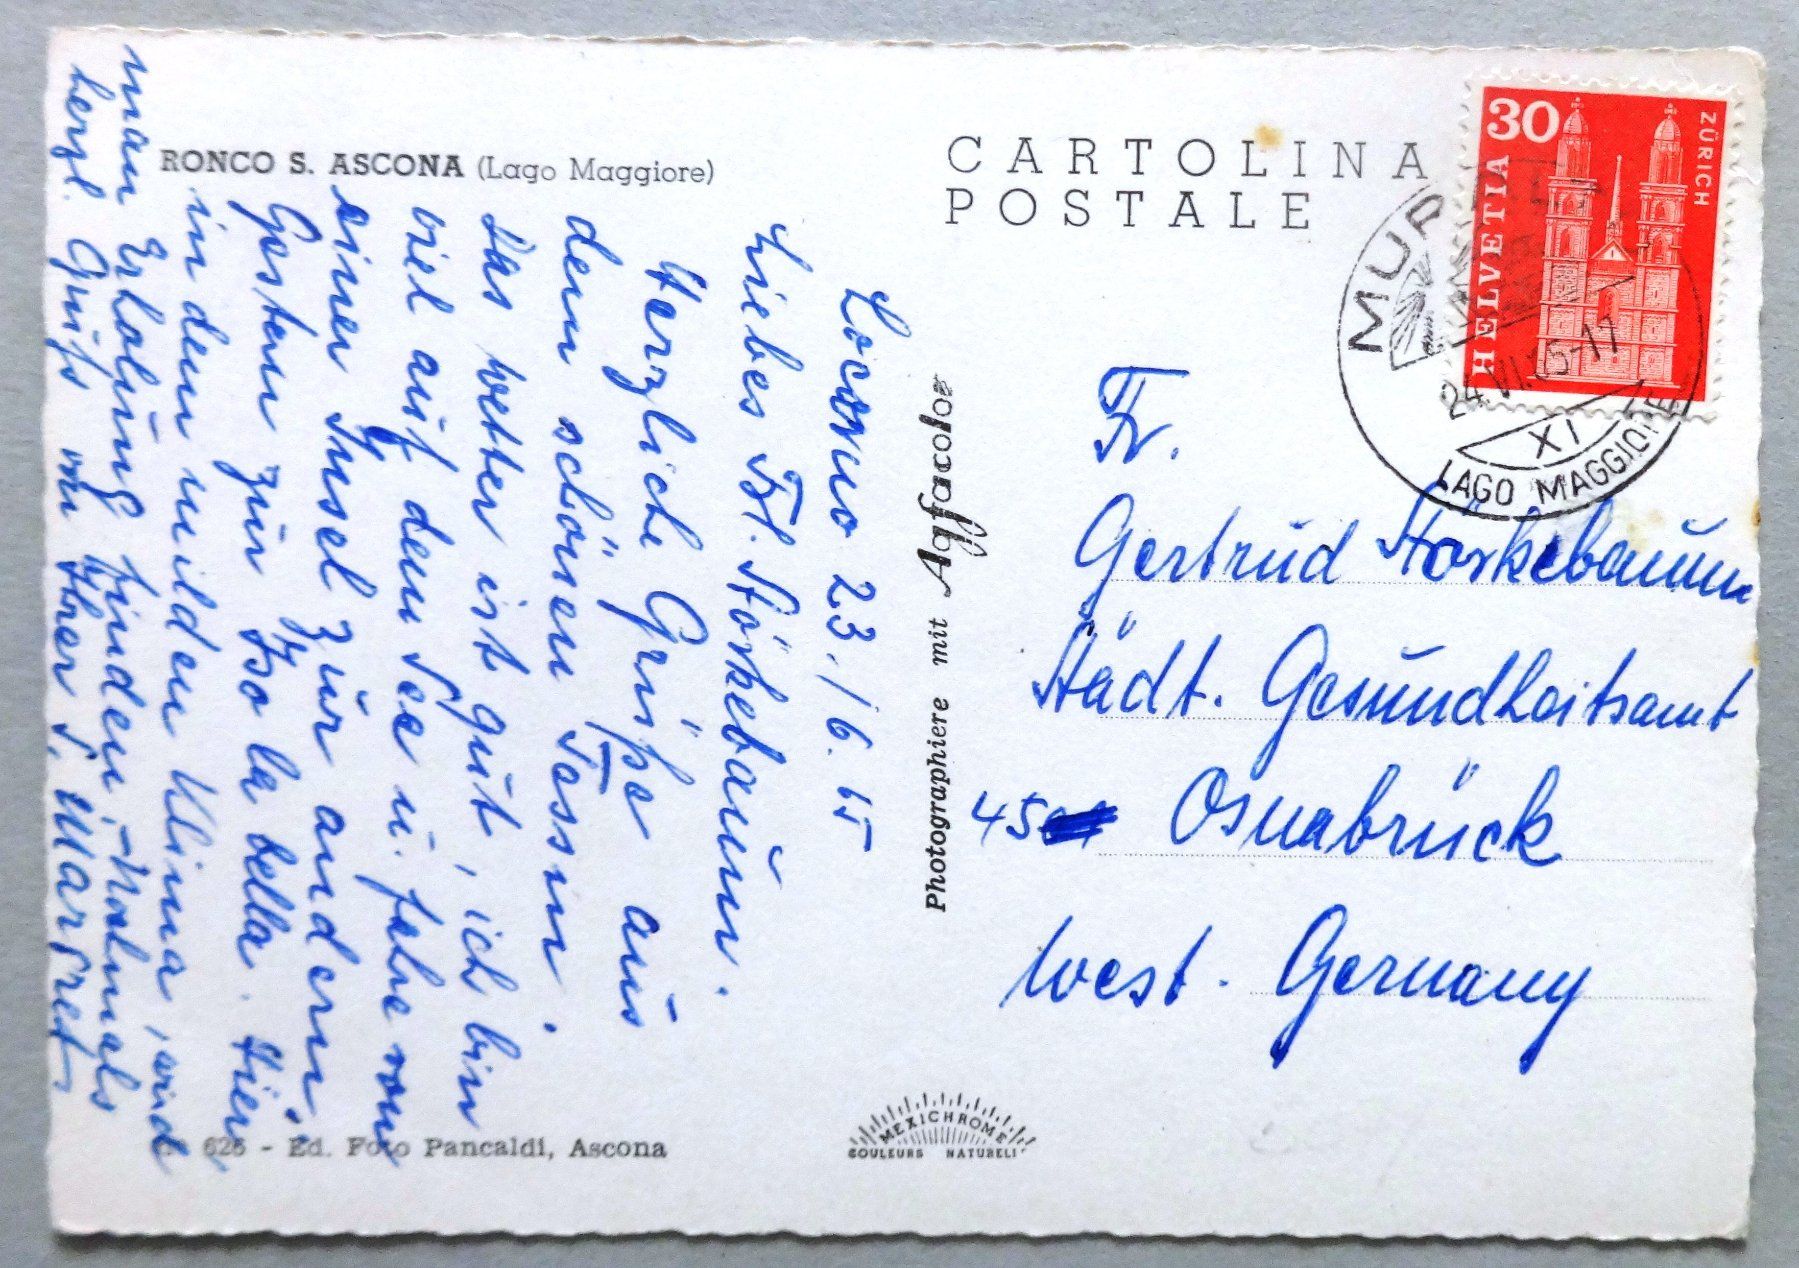 RONCO S. ASCONA (Lago Maggiore)
CARTOLINA
POSTALE
30
HELVETIA
ZÜRICH
24.VI.65-17
XI
LAGO MAGGIORE
Locarno 23./6. 65
Liebes Frl. Störkebaum.
Herzliche Grüße aus
dem schönen Tessin.
Das Wetter ist gut, ich bin
viel auf dem See u. fahre von
einer Insel zur andern,
Gestern zur Iso la bella. Hier
in dem milden Klima, wird
man Erholung finden, Nochmals
herzl. Gruß von Ihrer S. Margret
Photographiere mit Agfacolor
Fr.
Gertrud Störkebaum
Städt. Gesundheitsamt
45 Osnabrück
West. Germany
626 - Ed. Foto Pancaldi, Ascona
MEXICHROME
COULEURS NATURELL